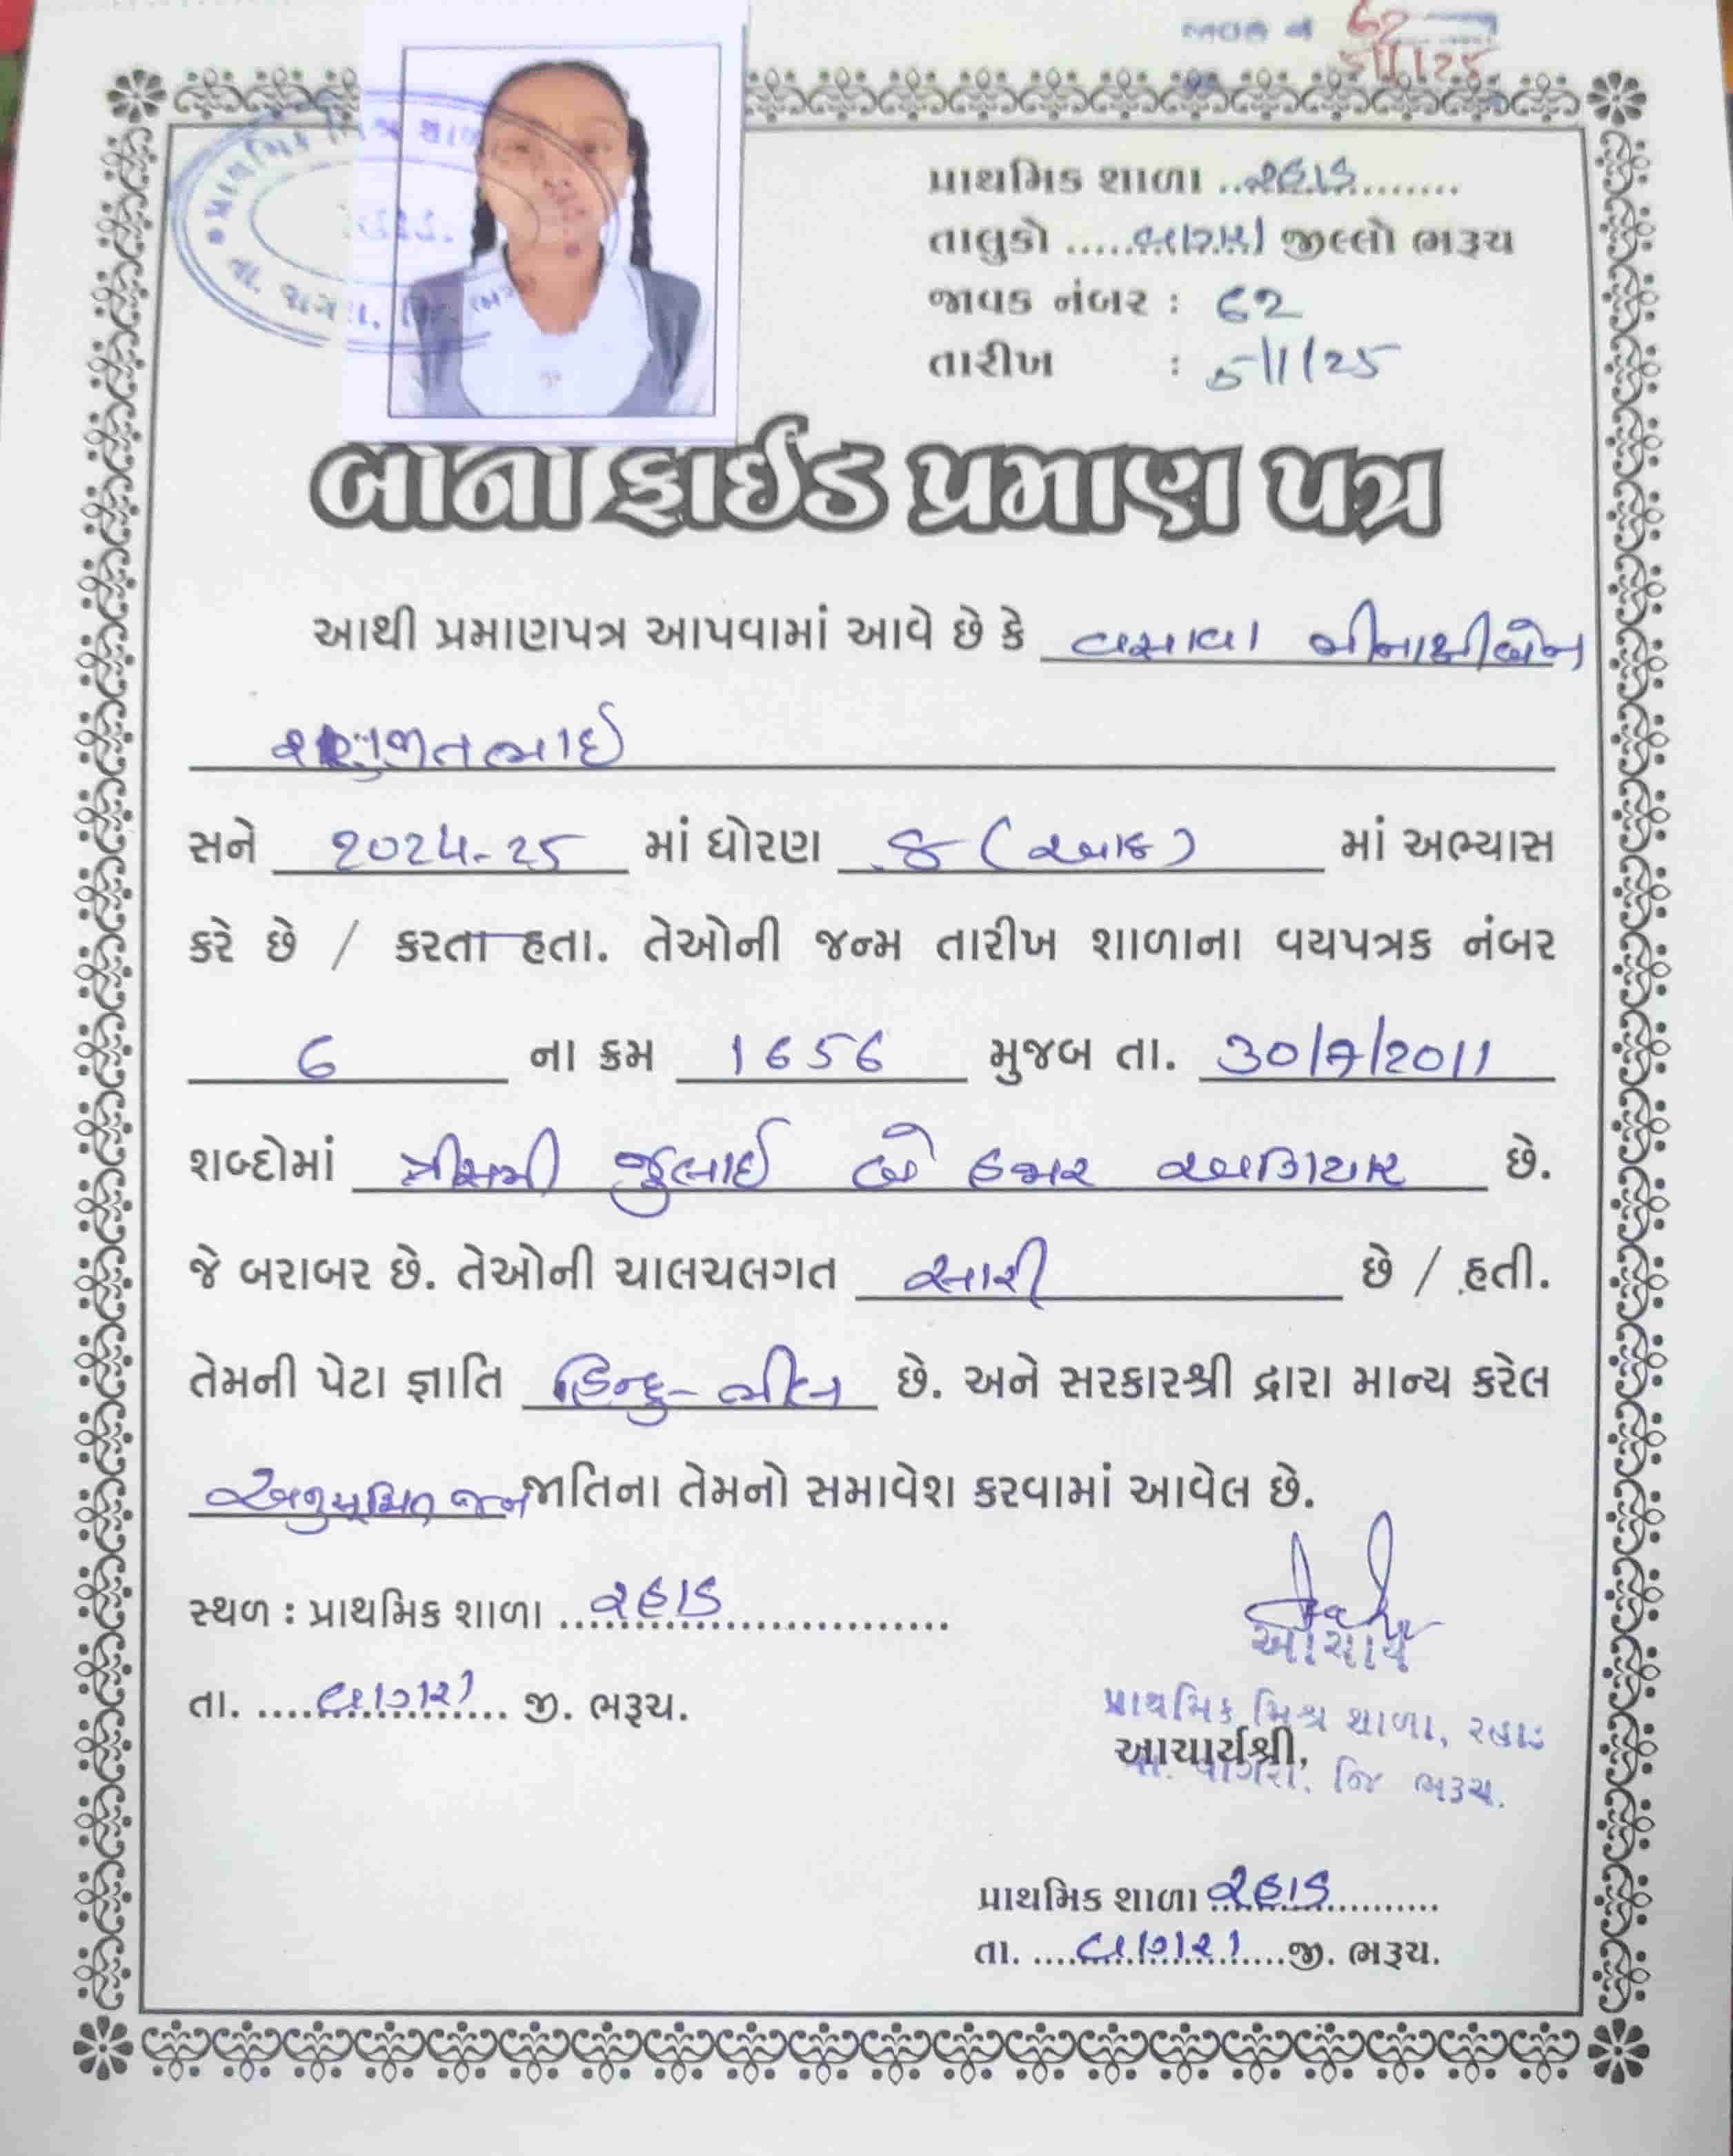 જાવક નં 62
5/1/25
પ્રાથમિક મિશ્ર શાળા
તા. વાગરા. જિ. ભરૂચ
પ્રાથમિક શાળા ..રહાડ..........
તાલુકો ......વાગરા જીલ્લો ભરૂચ
જાવક નંબર : 62
તારીખ : 5/1/25
બોનાફાઈડ પ્રમાણ પત્ર
આથી પ્રમાણપત્ર આપવામાં આવે છે કે વસાવા મીનાક્ષીબેન
સને 2024-25 માં ધોરણ 8 (આઠ) માં અભ્યાસ
કરે છે / કરતા હતા. તેઓની જન્મ તારીખ શાળાના વયપત્રક નંબર
6 ના ક્રમ 1656 મુજબ તા. 30/7/2011
શબ્દોમાં ત્રીસમી જુલાઈ બે હજાર અગિયાર છે.
જે બરાબર છે. તેઓની ચાલચલગત સારી છે / હતી.
તેમની પેટા જ્ઞાતિ હિન્દુ-ભીલ છે. અને સરકારશ્રી દ્વારા માન્ય કરેલ
અનુસૂચિત જન જાતિના તેમનો સમાવેશ કરવામાં આવેલ છે.
સ્થળ : પ્રાથમિક શાળા ..રહાડ....................
તા. .....વાગરા........ જી. ભરૂચ.
આચાર્ય
પ્રાથમિક મિશ્ર શાળા, રહાડ
આચાર્યશ્રી,
તા. વાગરા. જિ ભરૂચ.
પ્રાથમિક શાળા રહાડ...........
તા. ....વાગરા......જી. ભરૂચ.